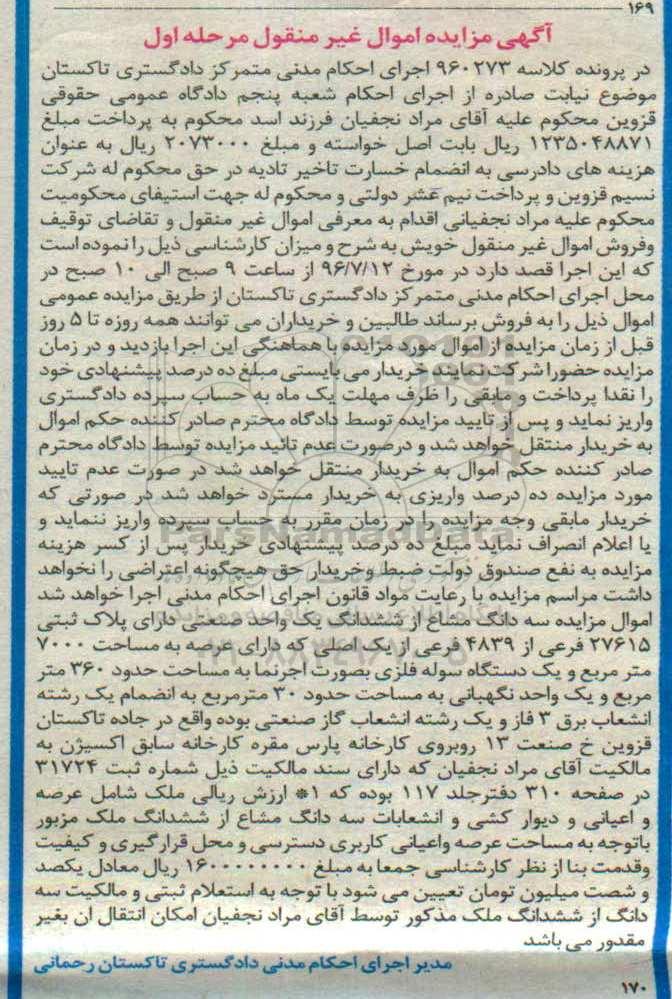 ۱۶۹
آگهی مزایده اموال غیر منقول مرحله اول
در پرونده کلاسه ۹۶۰۲۷۳ اجرای احکام مدنی متمرکز دادگستری تاکستان
موضوع نیابت صادره از اجرای احکام شعبه پنجم دادگاه عمومی حقوقی
قزوین محکوم علیه آقای مراد نجفیان فرزند اسد محکوم به پرداخت مبلغ
۱۲۳۵۰۴۸۸۷۱ ریال بابت اصل خواسته و مبلغ ۲۰۷۳۰۰۰ ریال به عنوان
هزینه های دادرسی به انضمام خسارت تاخیر تادیه در حق محکوم له شرکت
نسیم قزوین و پرداخت نیم عشر دولتی و محکوم له جهت استیفای محکومیت
محکوم علیه مراد نجفیانی اقدام به معرفی اموال غیر منقول و تقاضای توقیف
وفروش اموال غیر منقول خویش به شرح و میزان کارشناسی ذیل را نموده است
که این اجرا قصد دارد در مورخ ۹۶/۷/۱۲ از ساعت ۹ صبح الی ۱۰ صبح در
محل اجرای احکام مدنی متمرکز دادگستری تاکستان از طریق مزایده عمومی
اموال ذیل را به فروش برساند طالبین و خریداران می توانند همه روزه تا ۵ روز
قبل از زمان مزایده از اموال مورد مزایده با هماهنگی این اجرا بازدید و در زمان
مزایده حضورا شرکت نمایند خریدار می بایستی مبلغ ده درصد پیشنهادی خود
را نقدا پرداخت و مابقی را ظرف مهلت یک ماه به حساب سپرده دادگستری
واریز نماید و پس از تایید مزایده توسط دادگاه محترم صادر کننده حکم اموال
به خریدار منتقل خواهد شد و درصورت عدم تائید مزایده توسط دادگاه محترم
صادر کننده حکم اموال به خریدار منتقل خواهد شد در صورت عدم تایید
مورد مزایده ده درصد واریزی به خریدار مسترد خواهد شد در صورتی که
خریدار مابقی وجه مزایده را در زمان مقرر به حساب سپرده واریز ننماید و
یا اعلام انصراف نماید مبلغ ده درصد پیشنهادی خریدار پس از کسر هزینه
مزایده به نفع صندوق دولت ضبط وخریدار حق هیچگونه اعتراضی را نخواهد
داشت مراسم مزایده با رعایت مواد قانون اجرای احکام مدنی اجرا خواهد شد
اموال مزایده سه دانگ مشاع از ششدانگ یک واحد صنعتی دارای پلاک ثبتی
۲۷۶۱۵ فرعی از ۴۸۳۹ فرعی از یک اصلی که دارای عرصه به مساحت ۷۰۰۰
متر مربع و یک دستگاه سوله فلزی بصورت اجرنما به مساحت حدود ۳۶۰ متر
مربع و یک واحد نگهبانی به مساحت حدود ۳۰ مترمربع به انضمام یک رشته
انشعاب برق ۳ فاز و یک رشته انشعاب گاز صنعتی بوده واقع در جاده تاکستان
قزوین خ صنعت ۱۳ روبروی کارخانه پارس مقره کارخانه سابق اکسیژن به
مالکیت آقای مراد نجفیان که دارای سند مالکیت ذیل شماره ثبت ۳۱۷۲۴
در صفحه ۳۱۰ دفترجلد ۱۱۷ بوده که ۱* ارزش ریالی ملک شامل عرصه
و اعیانی و دیوار کشی و انشعابات سه دانگ مشاع از ششدانگ ملک مزبور
باتوجه به مساحت عرصه واعیانی کاربری دسترسی و محل قرار گیری و کیفیت
وقدمت بنا از نظر کارشناسی جمعا به مبلغ ۱۶۰۰۰۰۰۰۰۰ ریال معادل یکصد
و شصت میلیون تومان تعیین می شود با توجه به استعلام ثبتی و مالکیت سه
دانگ از ششدانگ ملک مذکور توسط آقای مراد نجفیان امکان انتقال ان بغیر
مقدور می باشد
مدیر اجرای احکام مدنی دادگستری تاکستان رحمانی
۱۷۰
ParsNamadData